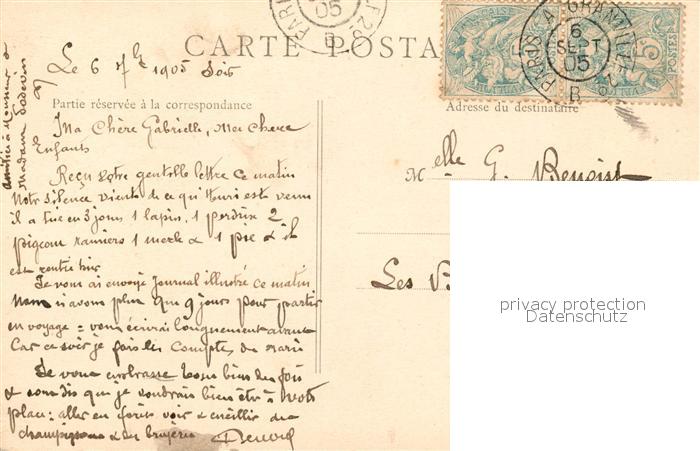 CARTE POSTA
Le 6 7bre 1905 Soir
Partie réservée à la correspondance
Adresse du destinataire
Ma Chère Gabrielle, Mes Chers
Enfants
Reçu votre gentille lettre ce matin
Notre silence vient de ce qu'Henri est venu
il a tué en 3 jours 1 lapin, 1 perdrix 2
pigeons ramiers 1 merle & 1 pie & il
est rentré hier
Je vous ai envoyé Journal illustré ce matin
Nous n'avons plus que 9 jours pour partir
en voyage = vous écrirai longuement avant
Car ce soir je fais les comptes de
Je vous embrasse tous bien des fois
& vous dis que je voudrais bien être à votre
place: aller en forêt voir & cueillir des
champignons & des bruyères
Amitiés à Monsieur &
Madame
Melle G. Benoist
Les
PARIS
05
PARIS
6
SEPT
05
POSTES
privacy protection
Datenschutz